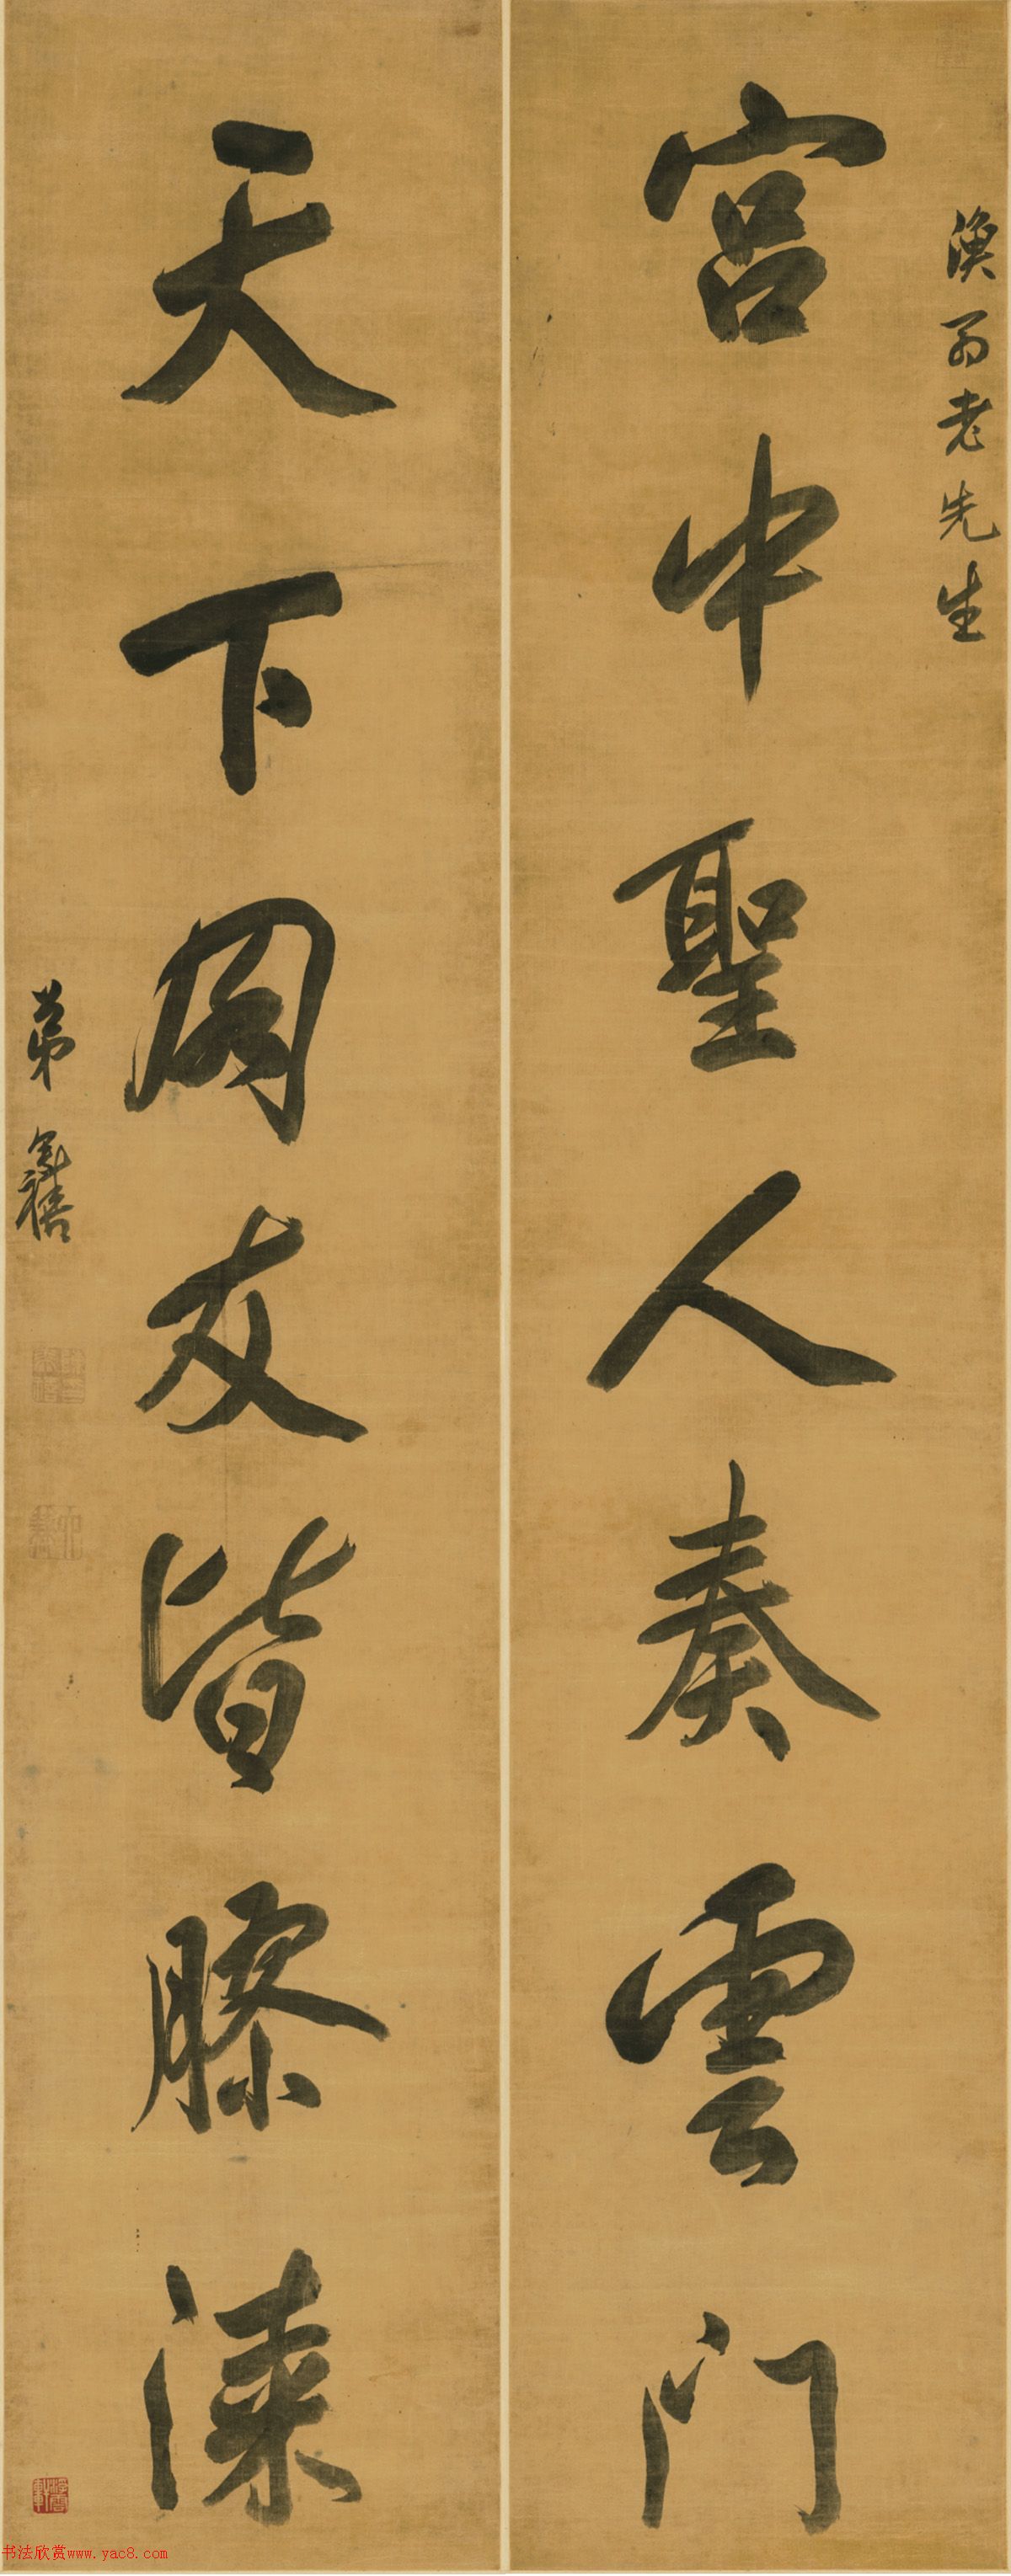 渙翁老先生
宮中聖人奏雲門
天下朋友皆膠漆
弟奕禧
书法欣赏www.yac8.com